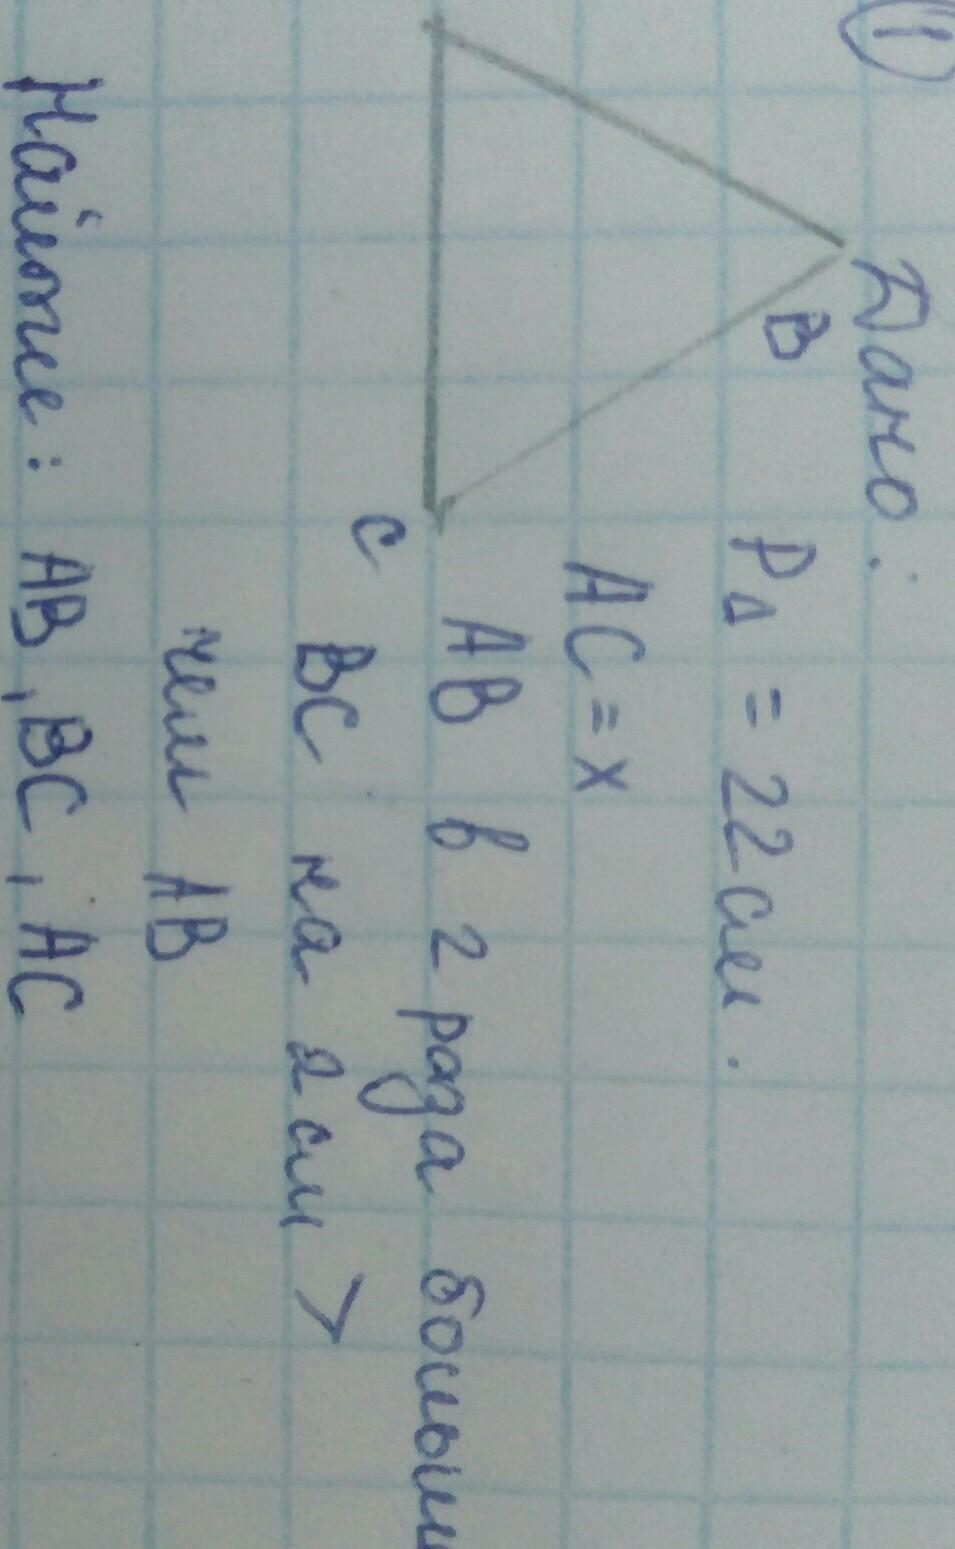 1
Дано:
B
P△ = 22 см.
AC = x
C
AB в 2 раза больш
BC на 2 см >
чем AB
Найти: AB, BC, AC